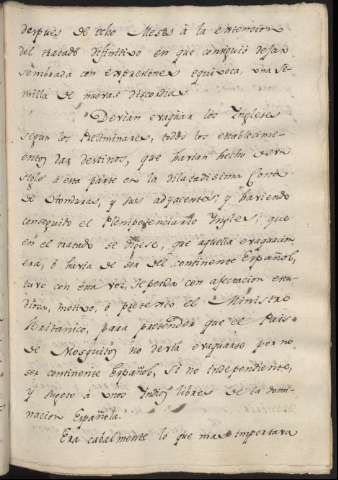 despues de ocho Meses à la extencion
del tratado difinitivo en que consiguió dejar
sembrada con expreciones equivocas una se-
milla de nuevas discordias.
Devian evaquar los Ingleses
segun los Preliminares, todos los establecimi-
entos que havian hecho
siglo à esta parte en la dilatadisima Costa
de Honduras, y sus adyacentes; y haviendo
conseguido el Plenipotenciario Ingles, que
en el tratado se dijese, que aquella evaquacion
era, ó havia de ser del continente Español,
tuvo con esta voz, de
motivo, ó pretexto el Ministro
Britanico, para pretender que el Pais
de Mosquitos no devia evaquarse por no
ser continente Español, sí no independiente,
y sugeto à unos Indios libres de la domi-
nacion Española.
Era cabalmente lo que mas importava